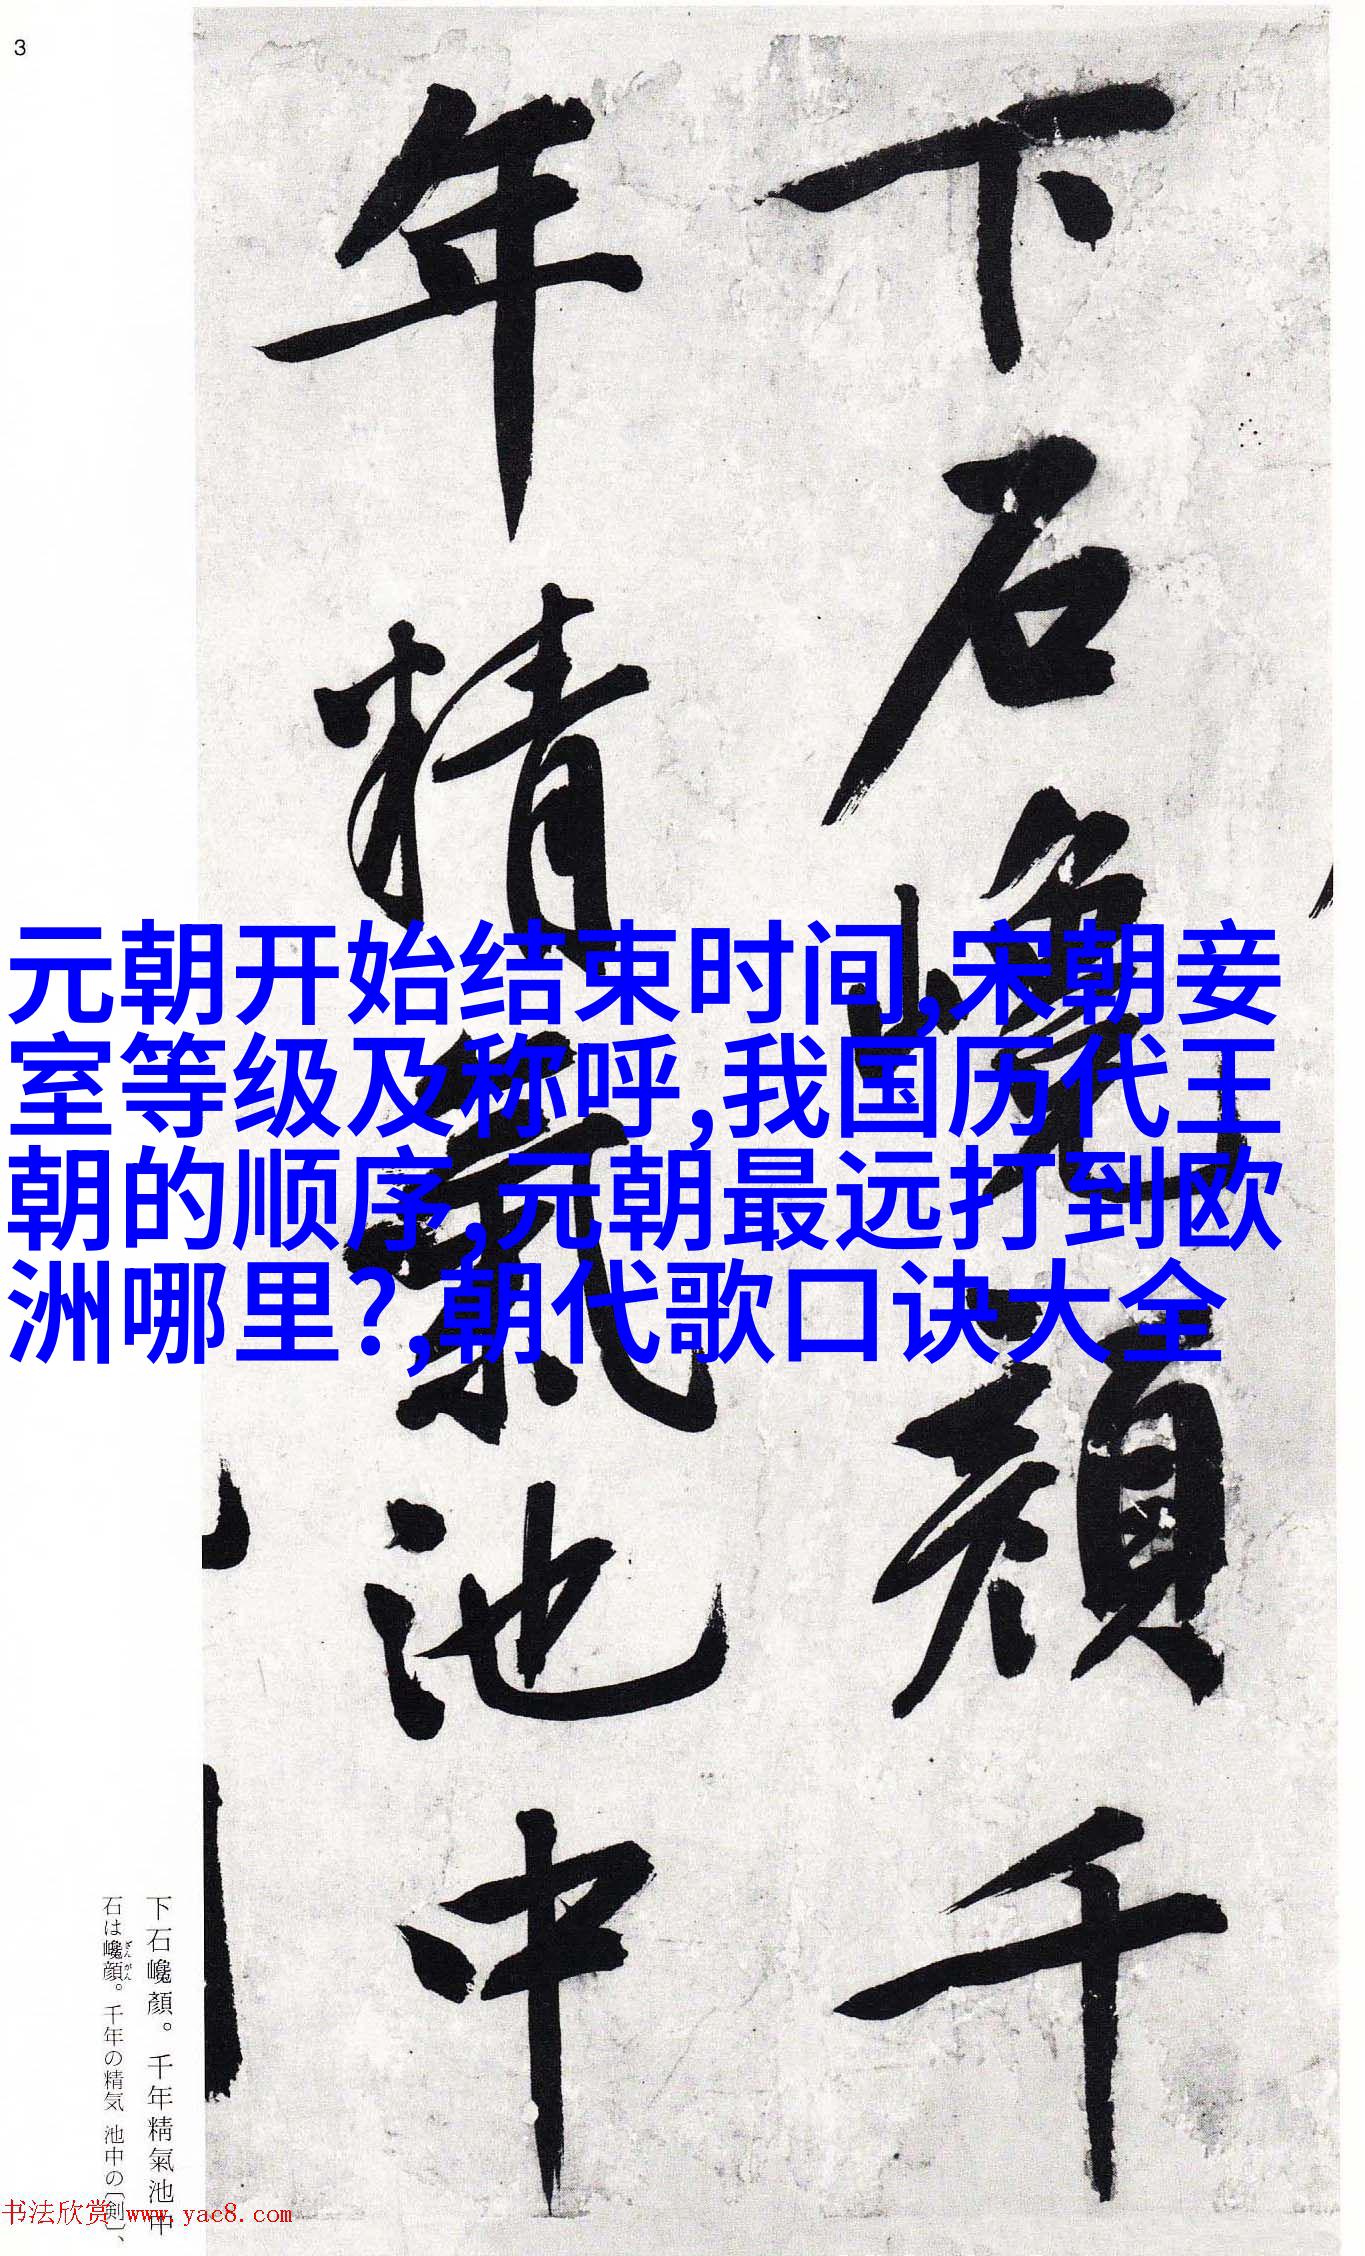 3
下石巉顏千
年精氣池中
元朝开始结束时间,宋朝妾
室等级及称呼,我国历代王
朝的顺序,元朝最远打到欧
洲哪里?,朝代歌口诀大全
下石巉顏。千年精氣池中
石は巉顔。千年の精気 池中の〔剣〕、
ざんがん
书法欣赏 www.yac8.com